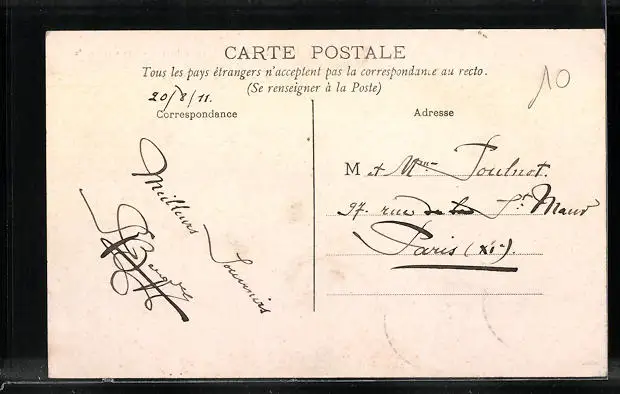 CARTE POSTALE
Tous les pays étrangers n'acceptent pas la correspondance au recto.
(Se renseigner à la Poste)
10
20/8/11.
Correspondance
Adresse
Meilleurs Souvenirs
M et Mme
97 rue de la St Maur
Paris (XIe).